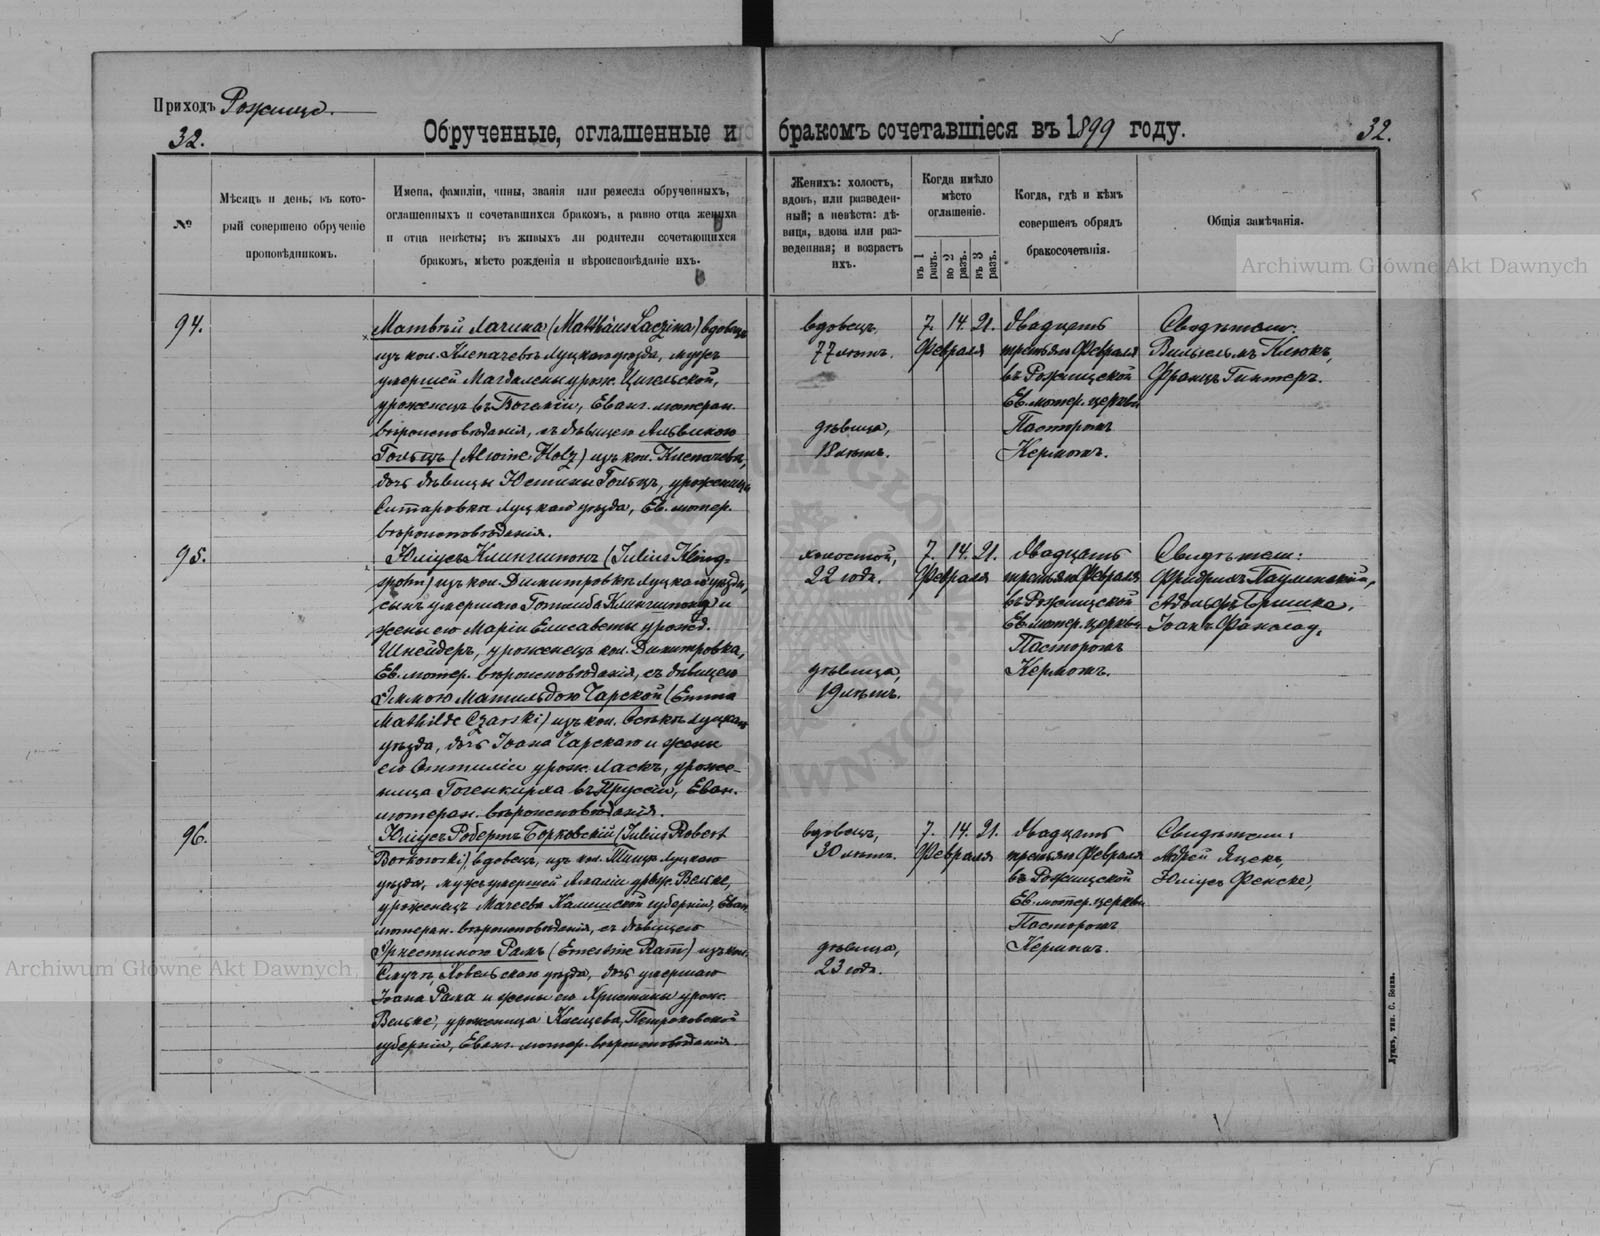 Приходъ Рожище.
32.
Обрученные, оглашенные и бракомъ сочетавшіеся въ 1899 году.
32.
№
Мѣсяцъ и день, въ кото-
рый совершено обрученіе
проповѣдникомъ.
Имена, фамиліи, чины, званія или ремесла обрученныхъ,
оглашенныхъ и сочетавшихся бракомъ, а равно отца жениха
и отца невѣсты; въ живыхъ ли родители сочетающихся
бракомъ, мѣсто рожденія и вѣроисповѣданіе ихъ.
Женихъ: холостъ,
вдовъ, или разведен-
ный; а невѣста: дѣ-
вица, вдова или раз-
веденная; и возрастъ
ихъ.
Когда имѣло
мѣсто
оглашеніе.
въ 1 разъ.
во 2 разъ.
въ 3 разъ.
Когда, гдѣ и кѣмъ
совершенъ обрядъ
бракосочетанія.
Общія замѣчанія.
Archiwum Główne Akt Dawnych
94.
Матвѣй Лачина (Matthäus Laczina) вдовецъ
изъ кол. Клепачевъ Луцкаго уѣзда, мужъ
умершей Магдалены урож. Цигельской,
уроженецъ въ Богеміи, Еванг. лютеран.
вѣроисповѣданія, съ дѣвицею Альвиною
Гольцъ (Alwine Holz) изъ кол. Клепачевъ,
дочь дѣвицы Юстины Гольцъ, уроженица
Луцкаго уѣзда, Ев. лютер.
вѣроисповѣданія.
вдовецъ,
77 лѣтъ.
дѣвица,
18 лѣтъ.
7. 14. 21.
Февраля
двадцать
третьяго Февраля
въ Рожищской
Ев. лютер. церкви
Пасторомъ
Кермомъ.
Свидѣтели:
Вильгельмъ Клюкъ,
Францъ Гинтеръ.
95.
Юліусъ Клингшпонъ (Julius Kling-
spohn) изъ кол. Димитровка Луцкаго уѣзда,
сынъ умершаго Готлиба Клингшпона и
жены его Маріи Елисаветы урожд.
Шнейдеръ, уроженецъ кол. Димитровка,
Ев. лютер. вѣроисповѣданія, съ дѣвицею
Эммою Матильдою Чарской (Emma
Mathilde Czarski) изъ кол. Осѣкъ Луцкаго
уѣзда, дочь Іоана Чарскаго и жены
его Оттиліи урож. Ласкъ, уроже-
ница Гогенкирха въ Пруссіи, Еван.
лютеран. вѣроисповѣданія.
холостой,
22 года.
дѣвица,
19 лѣтъ.
7. 14. 21.
Февраля
двадцать
третьяго Февраля
въ Рожищской
Ев. лютер. церкви
Пасторомъ
Кермомъ.
Свидѣтели:
Фридрихъ Паулинскій,
Адольфъ Бришке,
Іоанъ
96.
Юліусъ Робертъ Борковскій (Julius Robert
Borkowski) вдовецъ, изъ кол. Луцкаго
уѣзда, мужъ умершей Амаліи урож. Вельке,
уроженецъ Мачева Калишской губерніи, Еван.
лютеран. вѣроисповѣданія, съ дѣвицею
Эрнестиною Рамъ (Ernestine Ram) изъ кол.
Ковельскаго уѣзда, дочь умершаго
Іоана Рама и жены его Христины урож.
Вельке, уроженица Петроковской
губерніи, Еванг. лютер. вѣроисповѣданія.
вдовецъ,
30 лѣтъ.
дѣвица,
23 года.
7. 14. 21.
Февраля
двадцать
третьяго Февраля
въ Рожищской
Ев. лютер. церкви
Пасторомъ
Кермомъ.
Свидѣтели:
Яцекъ,
Юліусъ Фенске,
Archiwum Główne Akt Dawnych
Луцкъ, тип. С. Бонка.